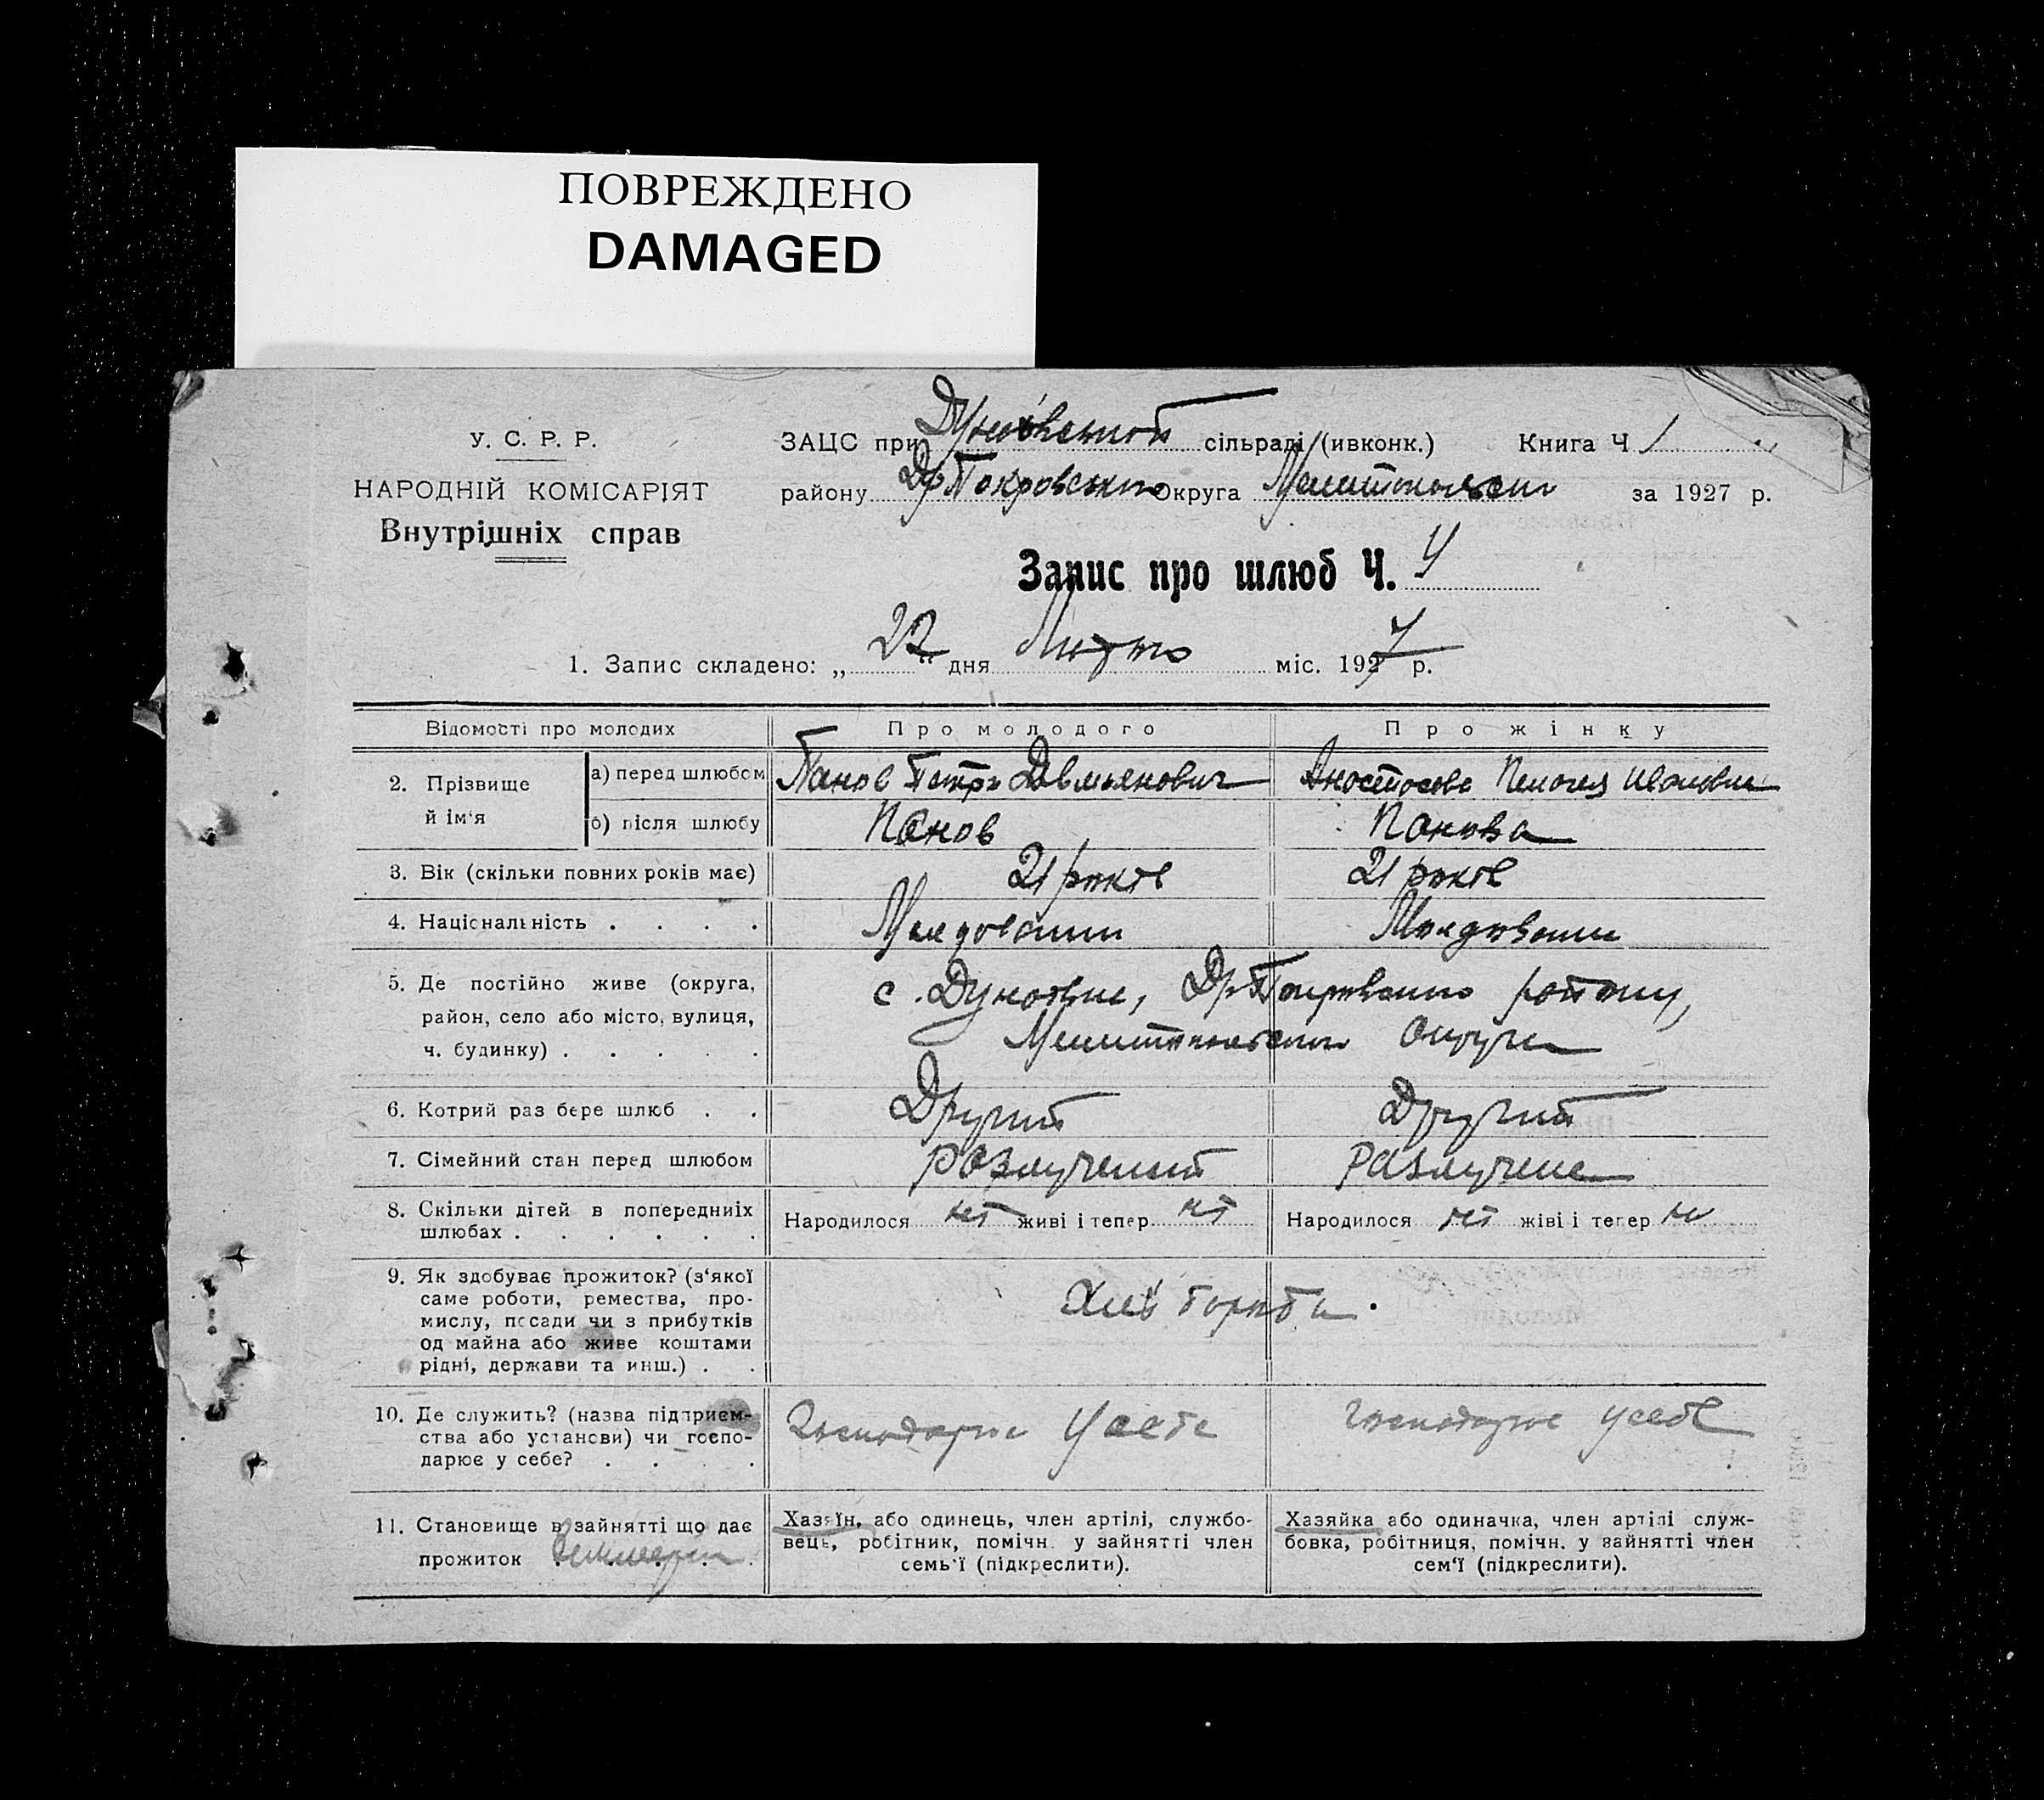 ПОВРЕЖДЕНО
DAMAGED
У. С. Р. Р.
НАРОДНІЙ КОМІСАРІЯТ
Внутрішніх справ
ЗАЦС при сільраді (ивконк.) Книга Ч 1
району Др Покровського Округа Мелітопольської за 1927 р.
Запис про шлюб Ч. 4
1. Запис складено: „ 22 “ дня Лютого міс. 1927 р.
Відомості про молодих Про молодого Про жінку
2. Прізвище й ім‘я
а) перед шлюбом Панов Петро Девмьянович Пелогея Ивановна
б) після шлюбу Панов Панова
3. Вік (скільки повних років має) 21 років 21 років
4. Національність . . . . Молдовани Молдовани
5. Де постійно живе (округа,
район, село або місто, вулиця,
ч. будинку) . . . . .
с. Др Покровського району,
Мелітопольської Округи
6. Котрий раз бере шлюб . . Другий Другий
7. Сімейний стан перед шлюбом Разлучений Разлучена
8. Скільки дітей в попередніх
шлюбах . . . . . .
Народилося нет живі і тепер нет Народилося нет жіві і тепер
9. Як здобуває прожиток? (з‘якої
саме роботи, ремества, про-
мислу, посади чи з прибутків
од майна або живе коштами
рідні, держави та инш.) . .
Хліборобы
10. Де служить? (назва підприєм-
ства або установи) чи госпо-
дарює у себе? . . . .
Господарює у себе Господарює у себе
11. Становище в зайнятті що дає
прожиток
Хазяїн, або одинець, член артілі, службо-
вець, робітник, помічн. у зайнятті член
семь‘ї (підкреслити).
Хазяйка або одиначка, член артілі служ-
бовка, робітниця, помічн. у зайнятті член
сем‘ї (підкреслити).